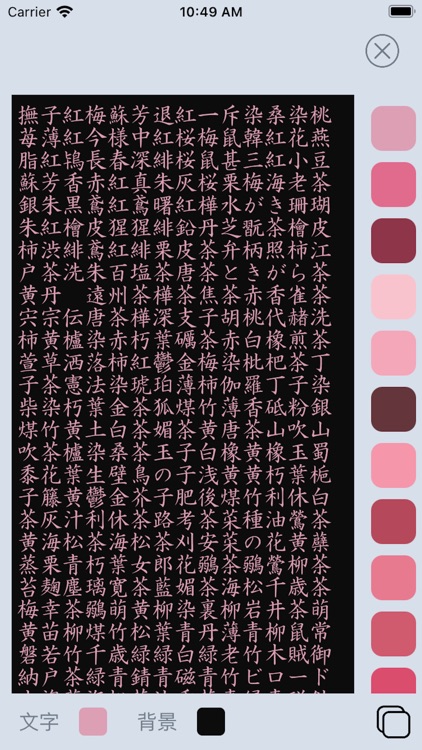 Carrier 10:49 AM
撫子紅梅蘇芳退紅一斥染桑染桃
苺薄紅今様中紅桜梅鼠韓紅花燕
脂紅鴇長春深緋桜鼠甚三紅小豆
蘇芳香赤紅真朱灰桜栗梅海老茶
銀朱黒鳶紅鳶曙紅樺水がき珊瑚
朱紅檜皮猩猩緋鉛丹芝翫茶檜皮
柿渋緋鳶緋栗皮茶弁柄茶照柿江
戸茶洗朱百塩茶唐茶ときがら茶
黄丹　遠州茶樺茶焦茶赤香雀茶
宍宗伝唐茶樺深支子胡桃代赭洗
柿黄櫨染赤朽葉礪茶赤白橡煎茶
萱草洒落柿紅鬱金梅染枇杷茶丁
子茶憲法染琥珀薄柿伽羅丁子染
柴染朽葉金茶狐煤竹薄香砥粉銀
煤竹黄土白茶媚茶黄唐茶山吹山
吹茶櫨染桑茶玉子白橡黄橡玉蜀
黍花葉生壁鳥の子浅黄黄朽葉梔
子籐黄鬱金芥子肥後煤竹利休白
茶灰汁利休茶路考茶菜種油鶯茶
黄海松茶海松茶刈安菜の花黄蘗
蒸栗青朽葉女郎花鶸茶鶸鶯柳茶
苔麹塵璃寛茶藍媚茶海松千歳茶
梅幸茶鶸萌黄柳染裏柳岩井茶萌
黄苗柳煤竹松葉青丹薄青柳鼠常
磐若竹千歳緑緑白緑老竹木賊御
納戸茶緑青錆青磁青竹ビロード
文字 背景